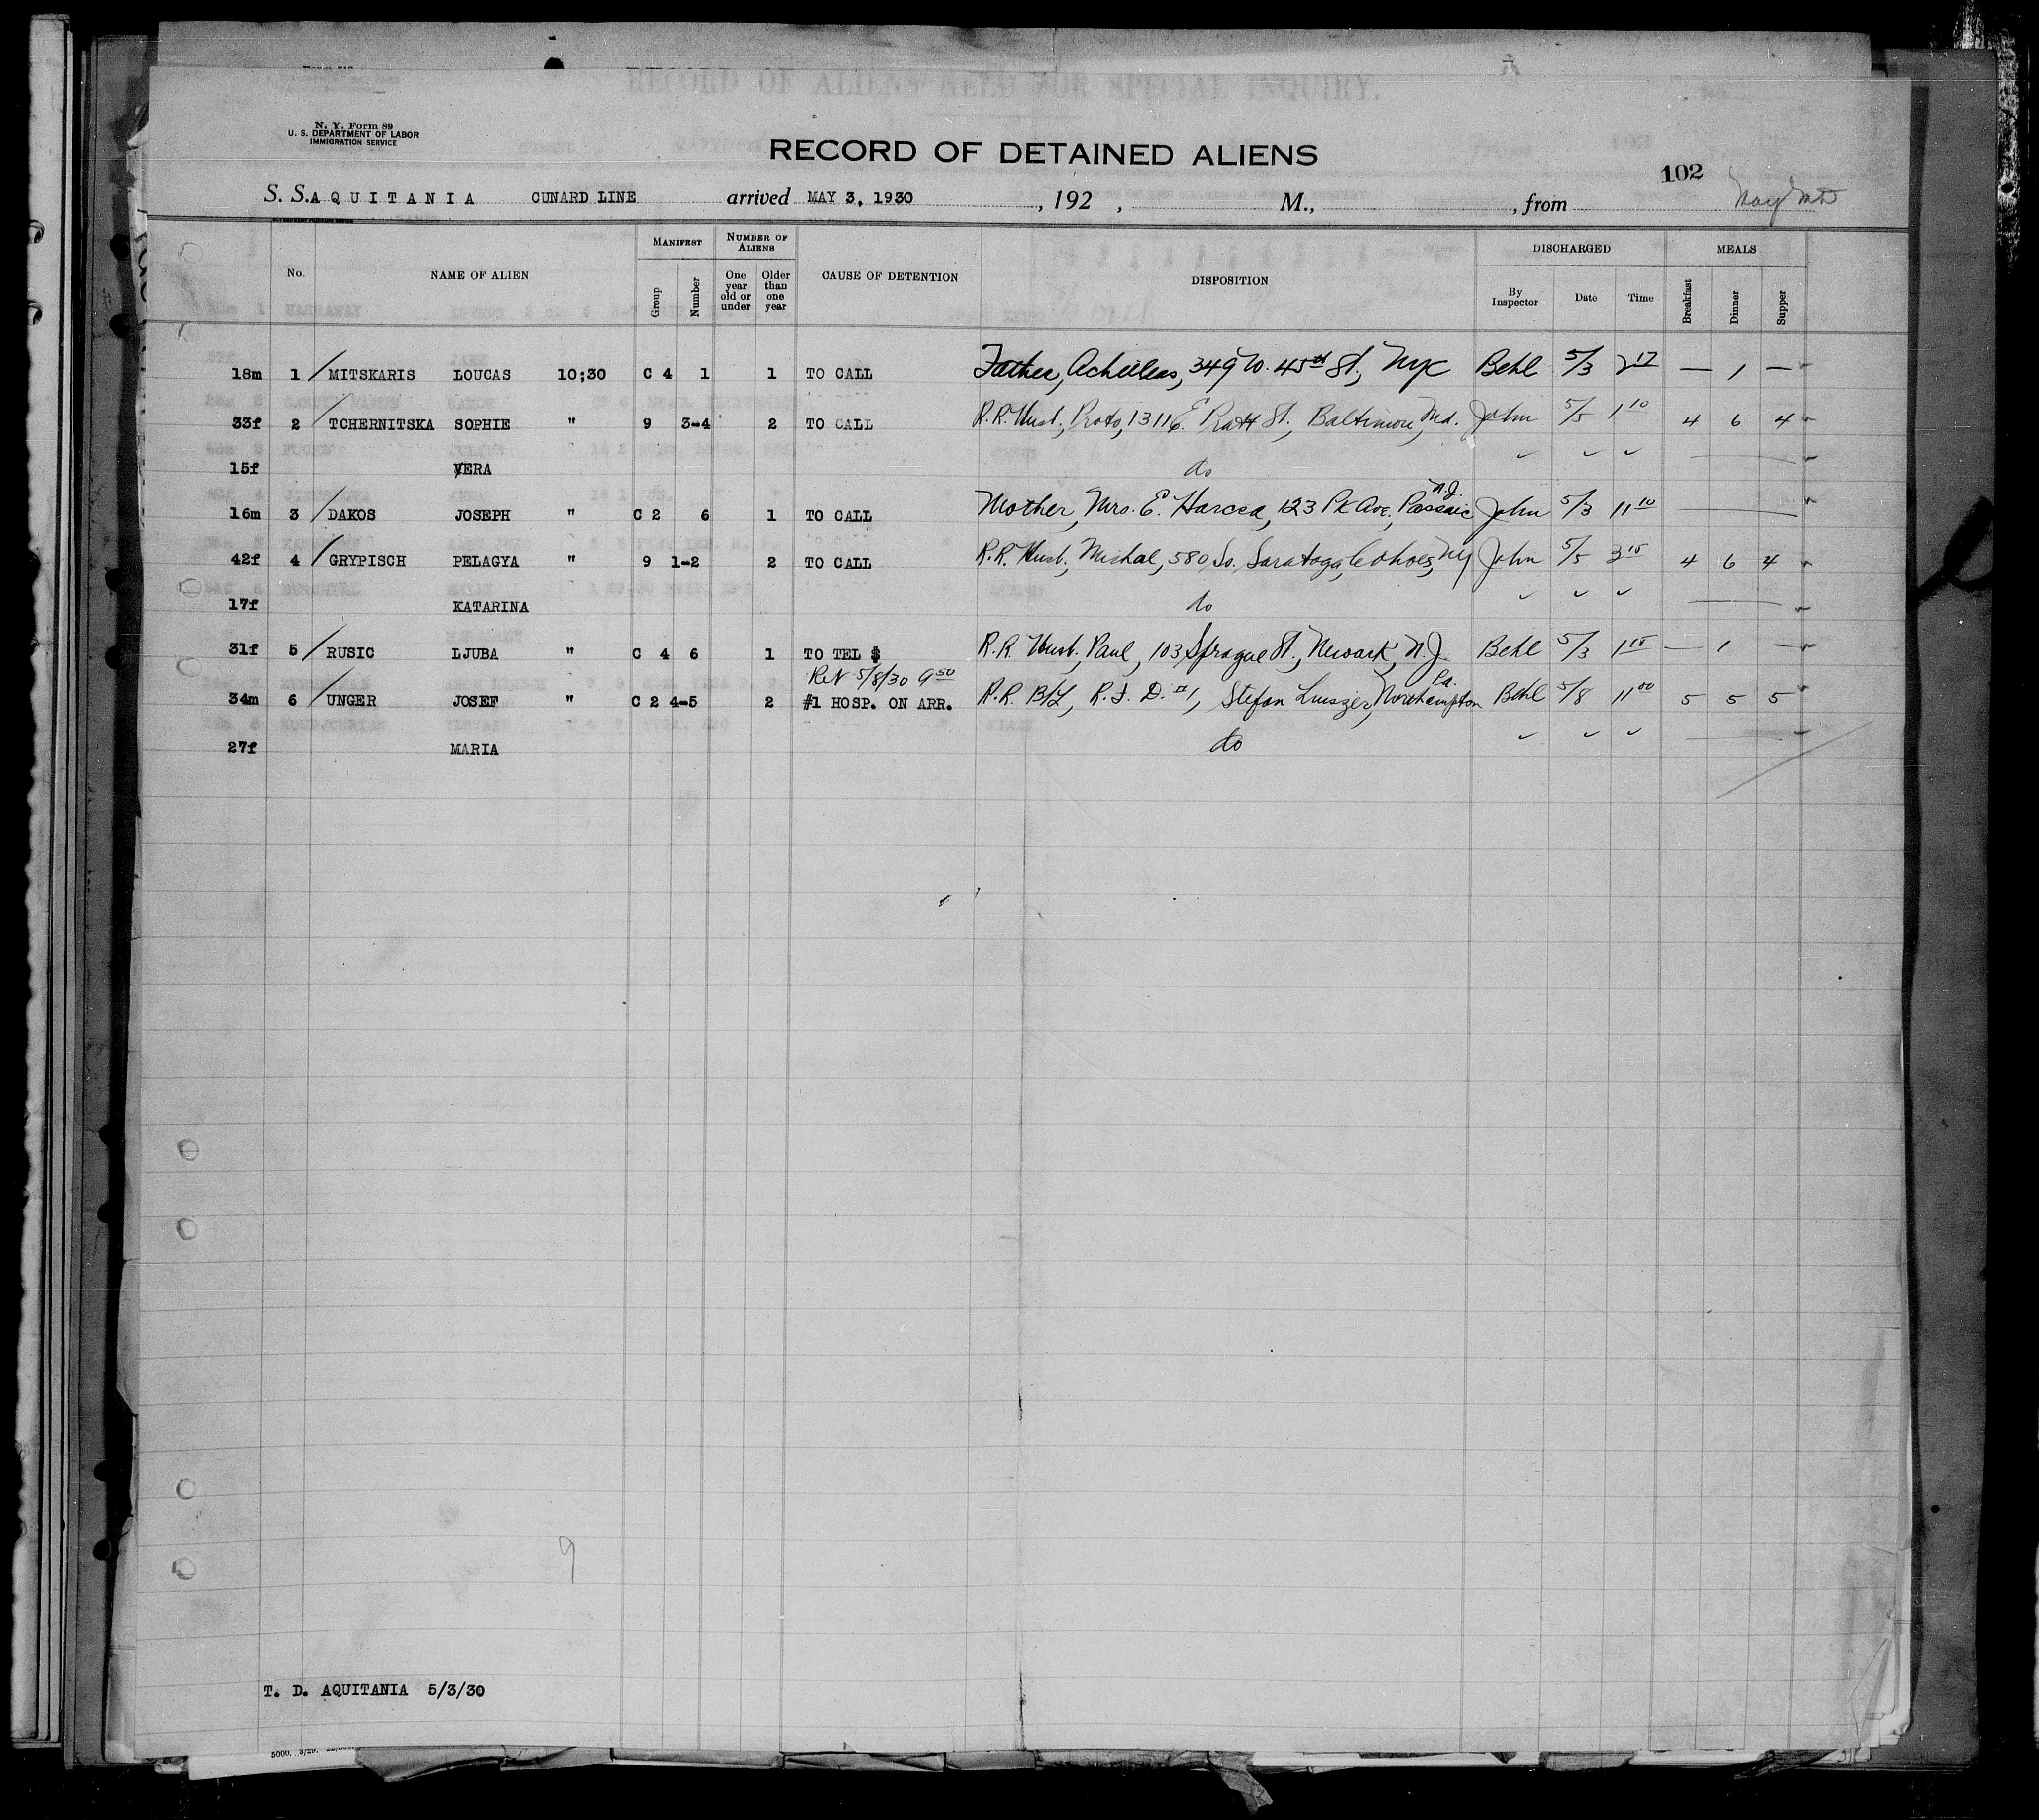 N. Y. Form 89
U. S. DEPARTMENT OF LABOR
IMMIGRATION SERVICE
RECORD OF DETAINED ALIENS
102
S. S. AQUITANIA CUNARD LINE arrived MAY 3, 1930 , 192 , M., , from
No. NAME OF ALIEN MANIFEST Group Number NUMBER OF ALIENS One year old or under Older than one year CAUSE OF DETENTION DISPOSITION DISCHARGED By Inspector Date Time MEALS Breakfast Dinner Supper
18m 1 / MITSKARIS LOUCAS 10;30 C 4 1 1 TO CALL Father, Achilleas, 349 W. 45th St., NYC Behl 5/3 2 17 — 1 —
33f 2 / TCHERNITSKA SOPHIE " 9 3-4 2 TO CALL R.R. Husb., Proto, 1311 E. Pratt St., Baltimore, Md. John 5/5 1 10 4 6 4
15f VERA do
16m 3 / DAKOS JOSEPH " C 2 6 1 TO CALL Mother, Mrs. E. Harcsa, 123 Pk Ave., Passaic N.J. John 5/3 11 10
42f 4 / GRYPISCH PELAGYA " 9 1-2 2 TO CALL R.R. Husb., Michal, 580 So. Saratoga, Cohoes, NY John 5/5 3 15 4 6 4
17f KATARINA do
31f 5 / RUSIC LJUBA " C 4 6 1 TO TEL $ R.R. Husb., Paul, 103 Sprague St., Newark, N.J. Behl 5/3 1 15 — 1 —
Ret 5/8/30 9 50
34m 6 / UNGER JOSEF " C 2 4-5 2 #1 HOSP. ON ARR. R.R. B/L, R.F.D. #1, Stefan Northampton Pa. Behl 5/8 11 00 5 5 5
27f MARIA do
9
T. D. AQUITANIA 5/3/30